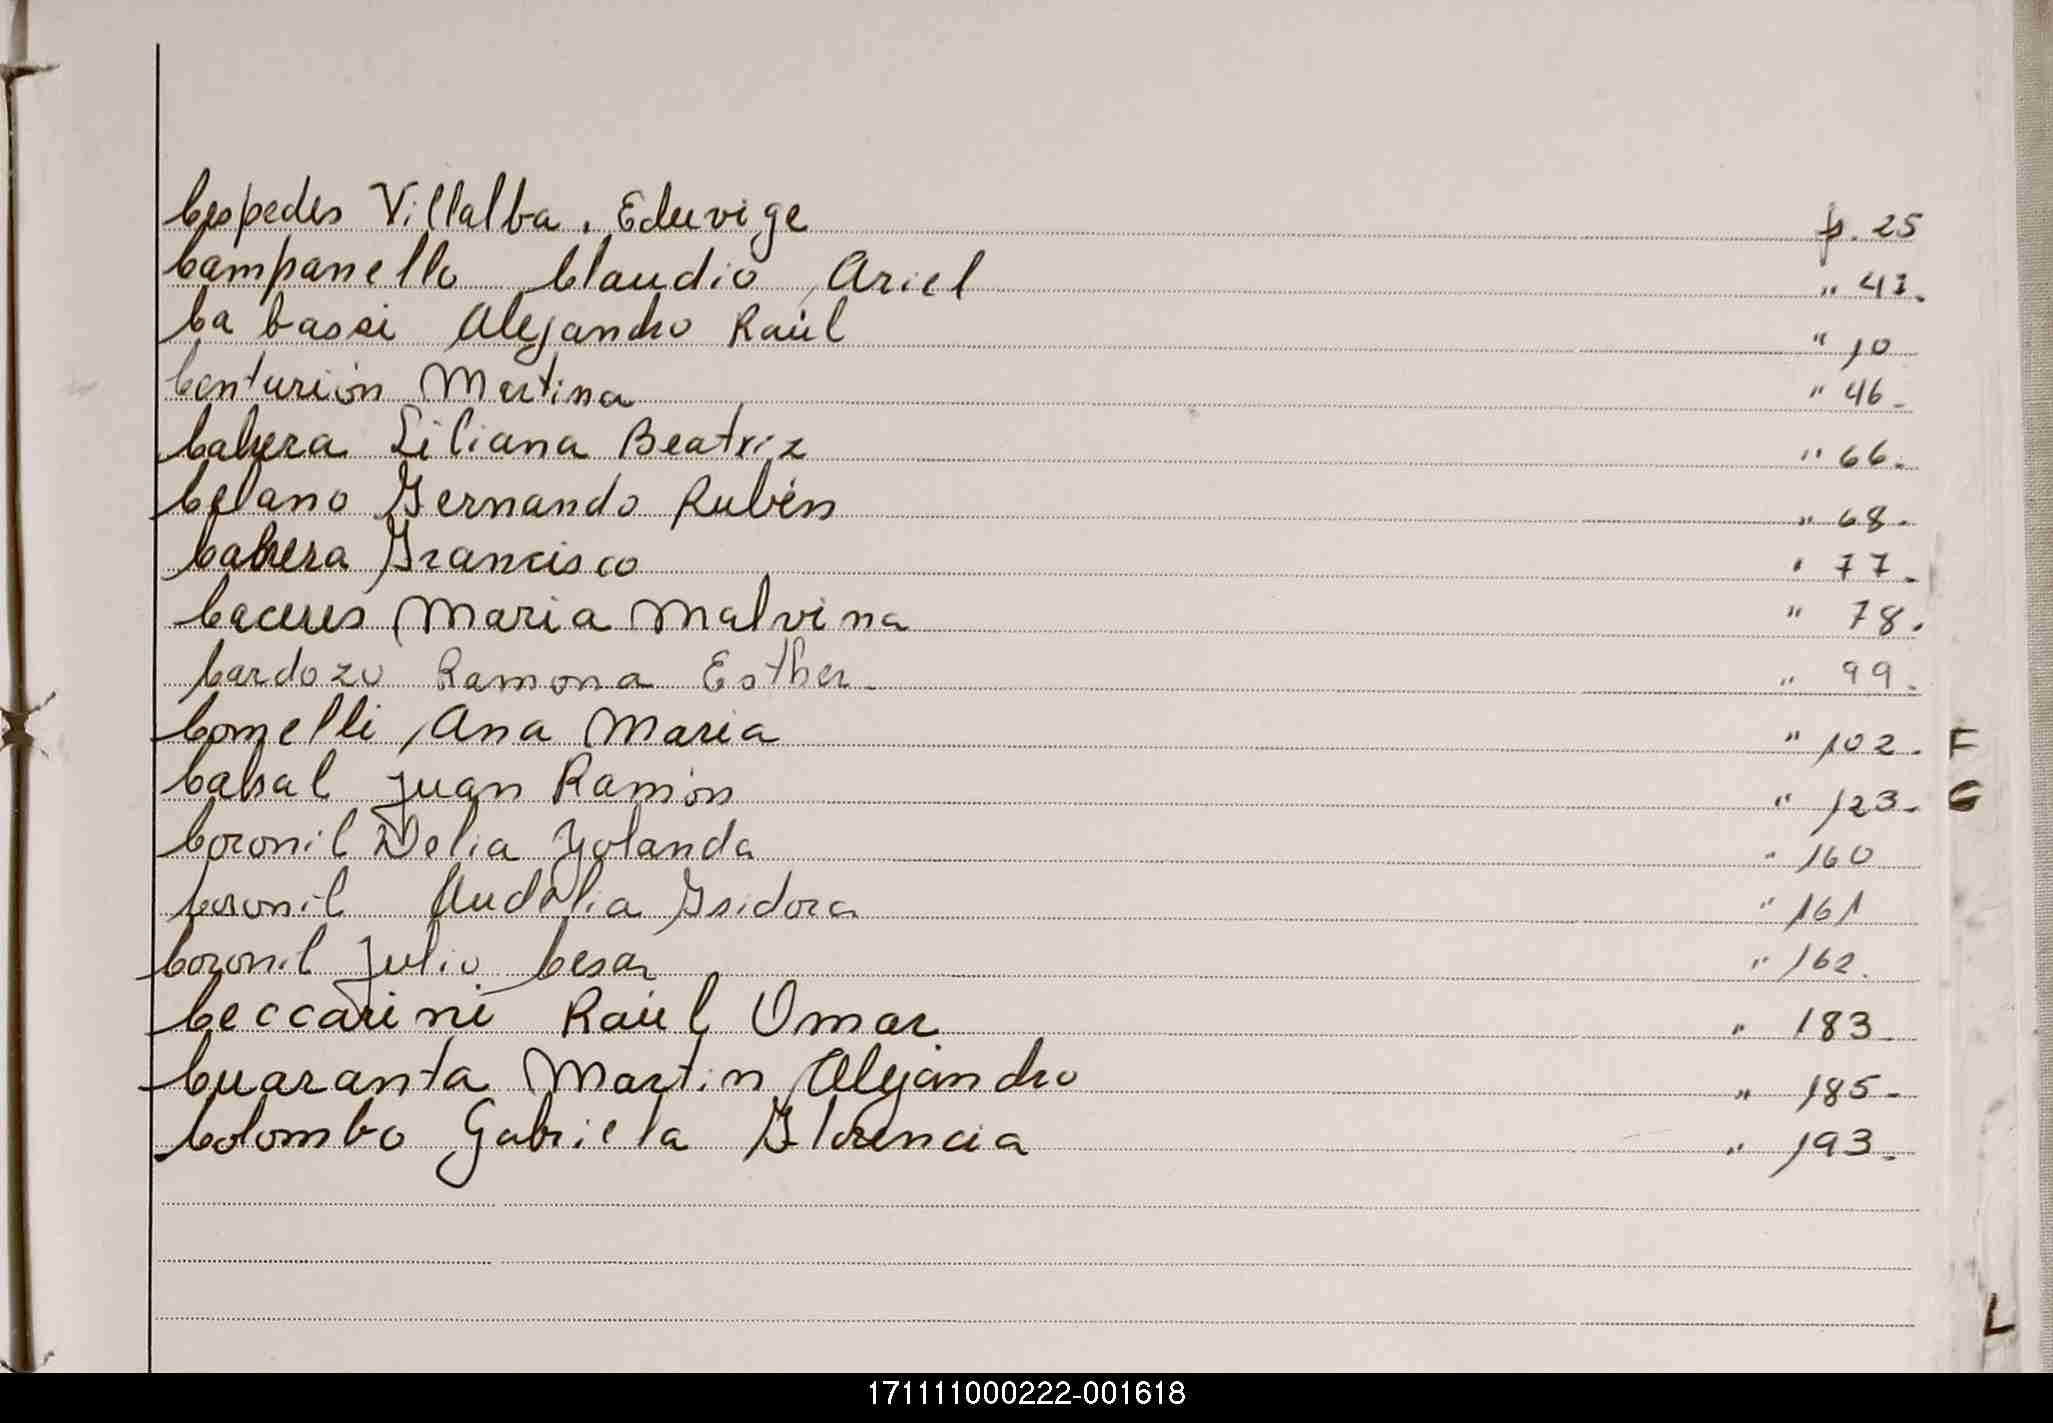 Cespedes Villalba, Eduvige p. 25
Campanello Claudio Ariel " 41.
Ca bassi Alejandro Raúl " 10
Centurión Martina " 46.
Cabrera Liliana Beatriz " 66.
Celano Fernando Rubén " 68.
Cabrera Francisco " 77.
Caceres Maria Malvina " 78.
Cardozo Ramona Esther " 99.
Comelli, Ana Maria " 102. F
Cabral Juan Ramón " 123. G
Coronil Delia Yolanda " 160
Coronil Isidora " 161
Coronil Julio Cesar " 162.
Ceccarini Raúl Omar " 183
Cuaranta Martin Alejandro " 185-
Colombo Gabriela Florencia " 193.
L
171111000222-001618